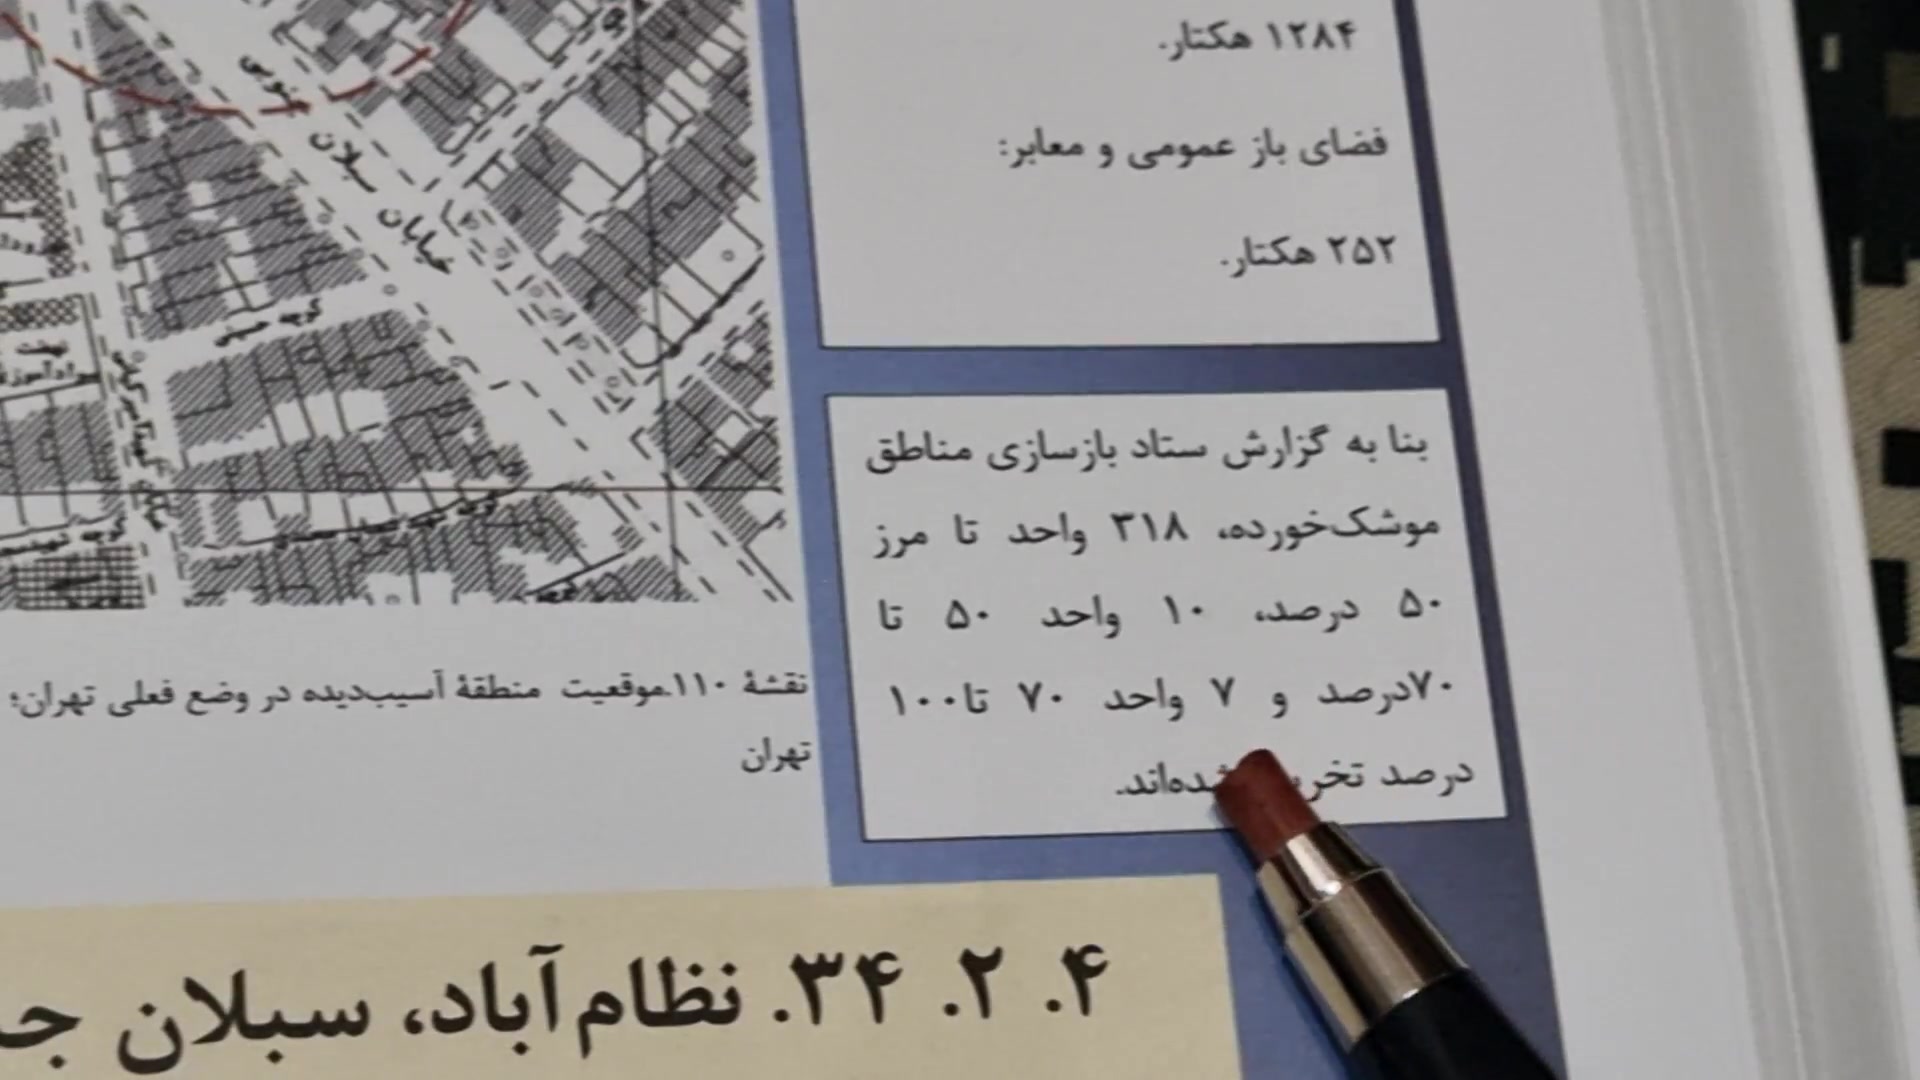 ۱۲۸۴ هکتار.
فضای باز عمومی و معابر:
۲۵۲ هکتار.
بنا به گزارش ستاد بازسازی مناطق
موشک‌خورده، ۳۱۸ واحد تا مرز
۵۰ درصد، ۱۰ واحد ۵۰ تا
۷۰درصد و ۷ واحد ۷۰ تا۱۰۰
درصد شده‌اند.
نقشهٔ ۱۱۰.موقعیت منطقهٔ آسیب‌دیده در وضع فعلی تهران؛
تهران
۴. ۲. ۳۴. نظام‌آباد، سبلان
خیابان سبلان جنوبی
کوچه حسینی